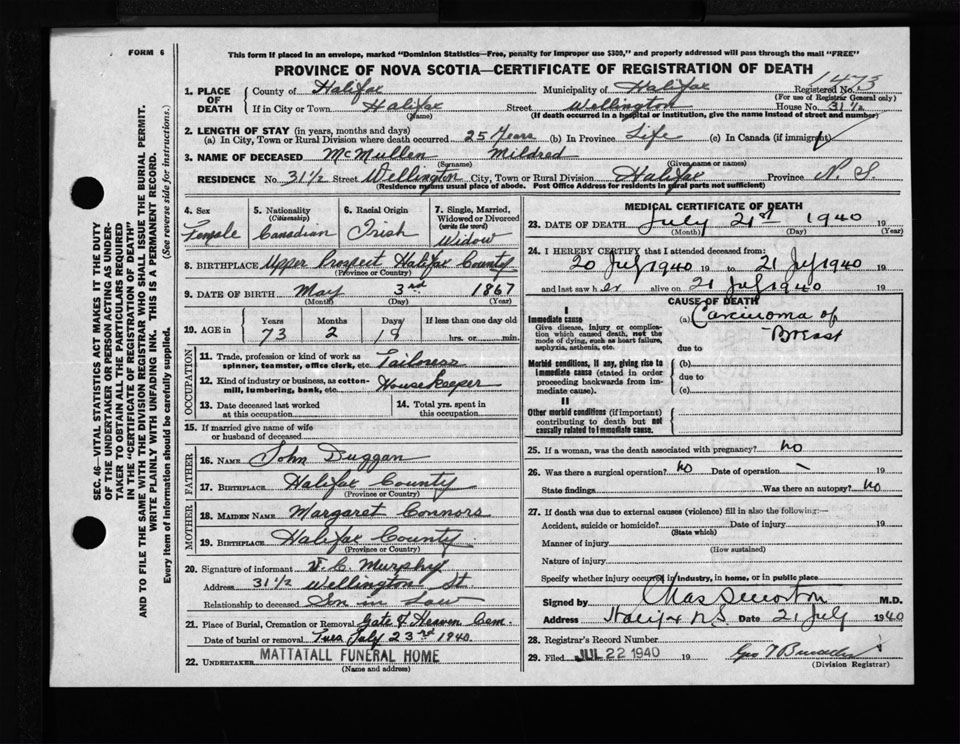 FORM 6
This form if placed in an envelope, marked "Dominion Statistics—Free, penalty for improper use $300," and properly addressed will pass through the mail "FREE"
PROVINCE OF NOVA SCOTIA—CERTIFICATE OF REGISTRATION OF DEATH
1473
1. PLACE OF DEATH
County of Halifax Municipality of Halifax Registered No.
(For use of Registrar General only)
If in City or Town Halifax Street Wellington House No. 31 1/2
(Name) (If death occurred in a hospital or institution, give the name instead of street and number)
2. LENGTH OF STAY (in years, months and days)
(a) In City, Town or Rural Division where death occurred 25 Years (b) In Province Life (c) In Canada (if immigrant)
3. NAME OF DECEASED McMullen Mildred
(Surname) (Given name or names)
RESIDENCE No. 31 1/2 Street Wellington City, Town or Rural Division Halifax Province N. S.
(Residence means usual place of abode. Post Office Address for residents in rural parts not sufficient)
4. Sex
Female
5. Nationality
(Citizenship)
Canadian
6. Racial Origin
Irish
7. Single, Married, Widowed or Divorced
(write the word)
Widow
8. BIRTHPLACE Upper Prospect Halifax County
(Province or Country)
9. DATE OF BIRTH May 3rd 1867
(Month) (Day) (Year)
10. AGE in
Years Months Days If less than one day old
73 2 19 hrs. or min.
OCCUPATION
11. Trade, profession or kind of work as spinner, teamster, office clerk, etc. Tailoress
12. Kind of industry or business, as cotton-mill, lumbering, bank, etc. Housekeeper
13. Date deceased last worked at this occupation
14. Total yrs. spent in this occupation
15. If married give name of wife or husband of deceased
FATHER
16. NAME John Duggan
17. BIRTHPLACE Halifax County
(Province or Country)
MOTHER
18. MAIDEN NAME Margaret Connors
19. BIRTHPLACE Halifax County
(Province or Country)
20. Signature of informant V. C. Murphy
Address 31 1/2 Wellington St.
Relationship to deceased Son in Law
21. Place of Burial, Cremation or Removal Gate of Heaven Cem.
Date of burial or removal Tues July 23rd 1940
22. UNDERTAKER MATTATALL FUNERAL HOME
(Name and address)
MEDICAL CERTIFICATE OF DEATH
23. DATE OF DEATH July 21st 1940 19
(Month) (Day) (Year)
24. I HEREBY CERTIFY that I attended deceased from:
20 July 1940 19 to 21 July 1940
and last saw her alive on 21 July 1940 19
CAUSE OF DEATH
I
Immediate cause
Give disease, injury or complication which caused death, not the mode of dying, such as heart failure, asphyxia, asthenia, etc.
(a) Carcinoma of Breast
due to
Morbid conditions, if any, giving rise to immediate cause (stated in order proceeding backwards from immediate cause).
(b)
due to
(c)
II
Other morbid conditions (if important) contributing to death but not causally related to immediate cause.
25. If a woman, was the death associated with pregnancy? No
26. Was there a surgical operation? No Date of operation 19
State findings Was there an autopsy? No
27. If death was due to external causes (violence) fill in also the following:—
Accident, suicide or homicide? Date of injury 19
(State which)
Manner of injury
(How sustained)
Nature of injury
Specify whether injury occurred in industry, in home, or in public place
Signed by Chas S Morton M.D.
Address Halifax N.S. Date 21 July 1940
28. Registrar's Record Number
29. Filed JUL 22 1940 19
(Division Registrar)
SEC. 46—VITAL STATISTICS ACT MAKES IT THE DUTY
OF THE UNDERTAKER OR PERSON ACTING AS UNDERTAKER TO OBTAIN ALL THE PARTICULARS REQUIRED
IN THE "CERTIFICATE OF REGISTRATION OF DEATH"
AND TO FILE THE SAME WITH THE DIVISION REGISTRAR WHO SHALL ISSUE THE BURIAL PERMIT.
WRITE PLAINLY WITH UNFADING INK. THIS IS A PERMANENT RECORD.
Every item of information should be carefully supplied. (See reverse side for instructions.)